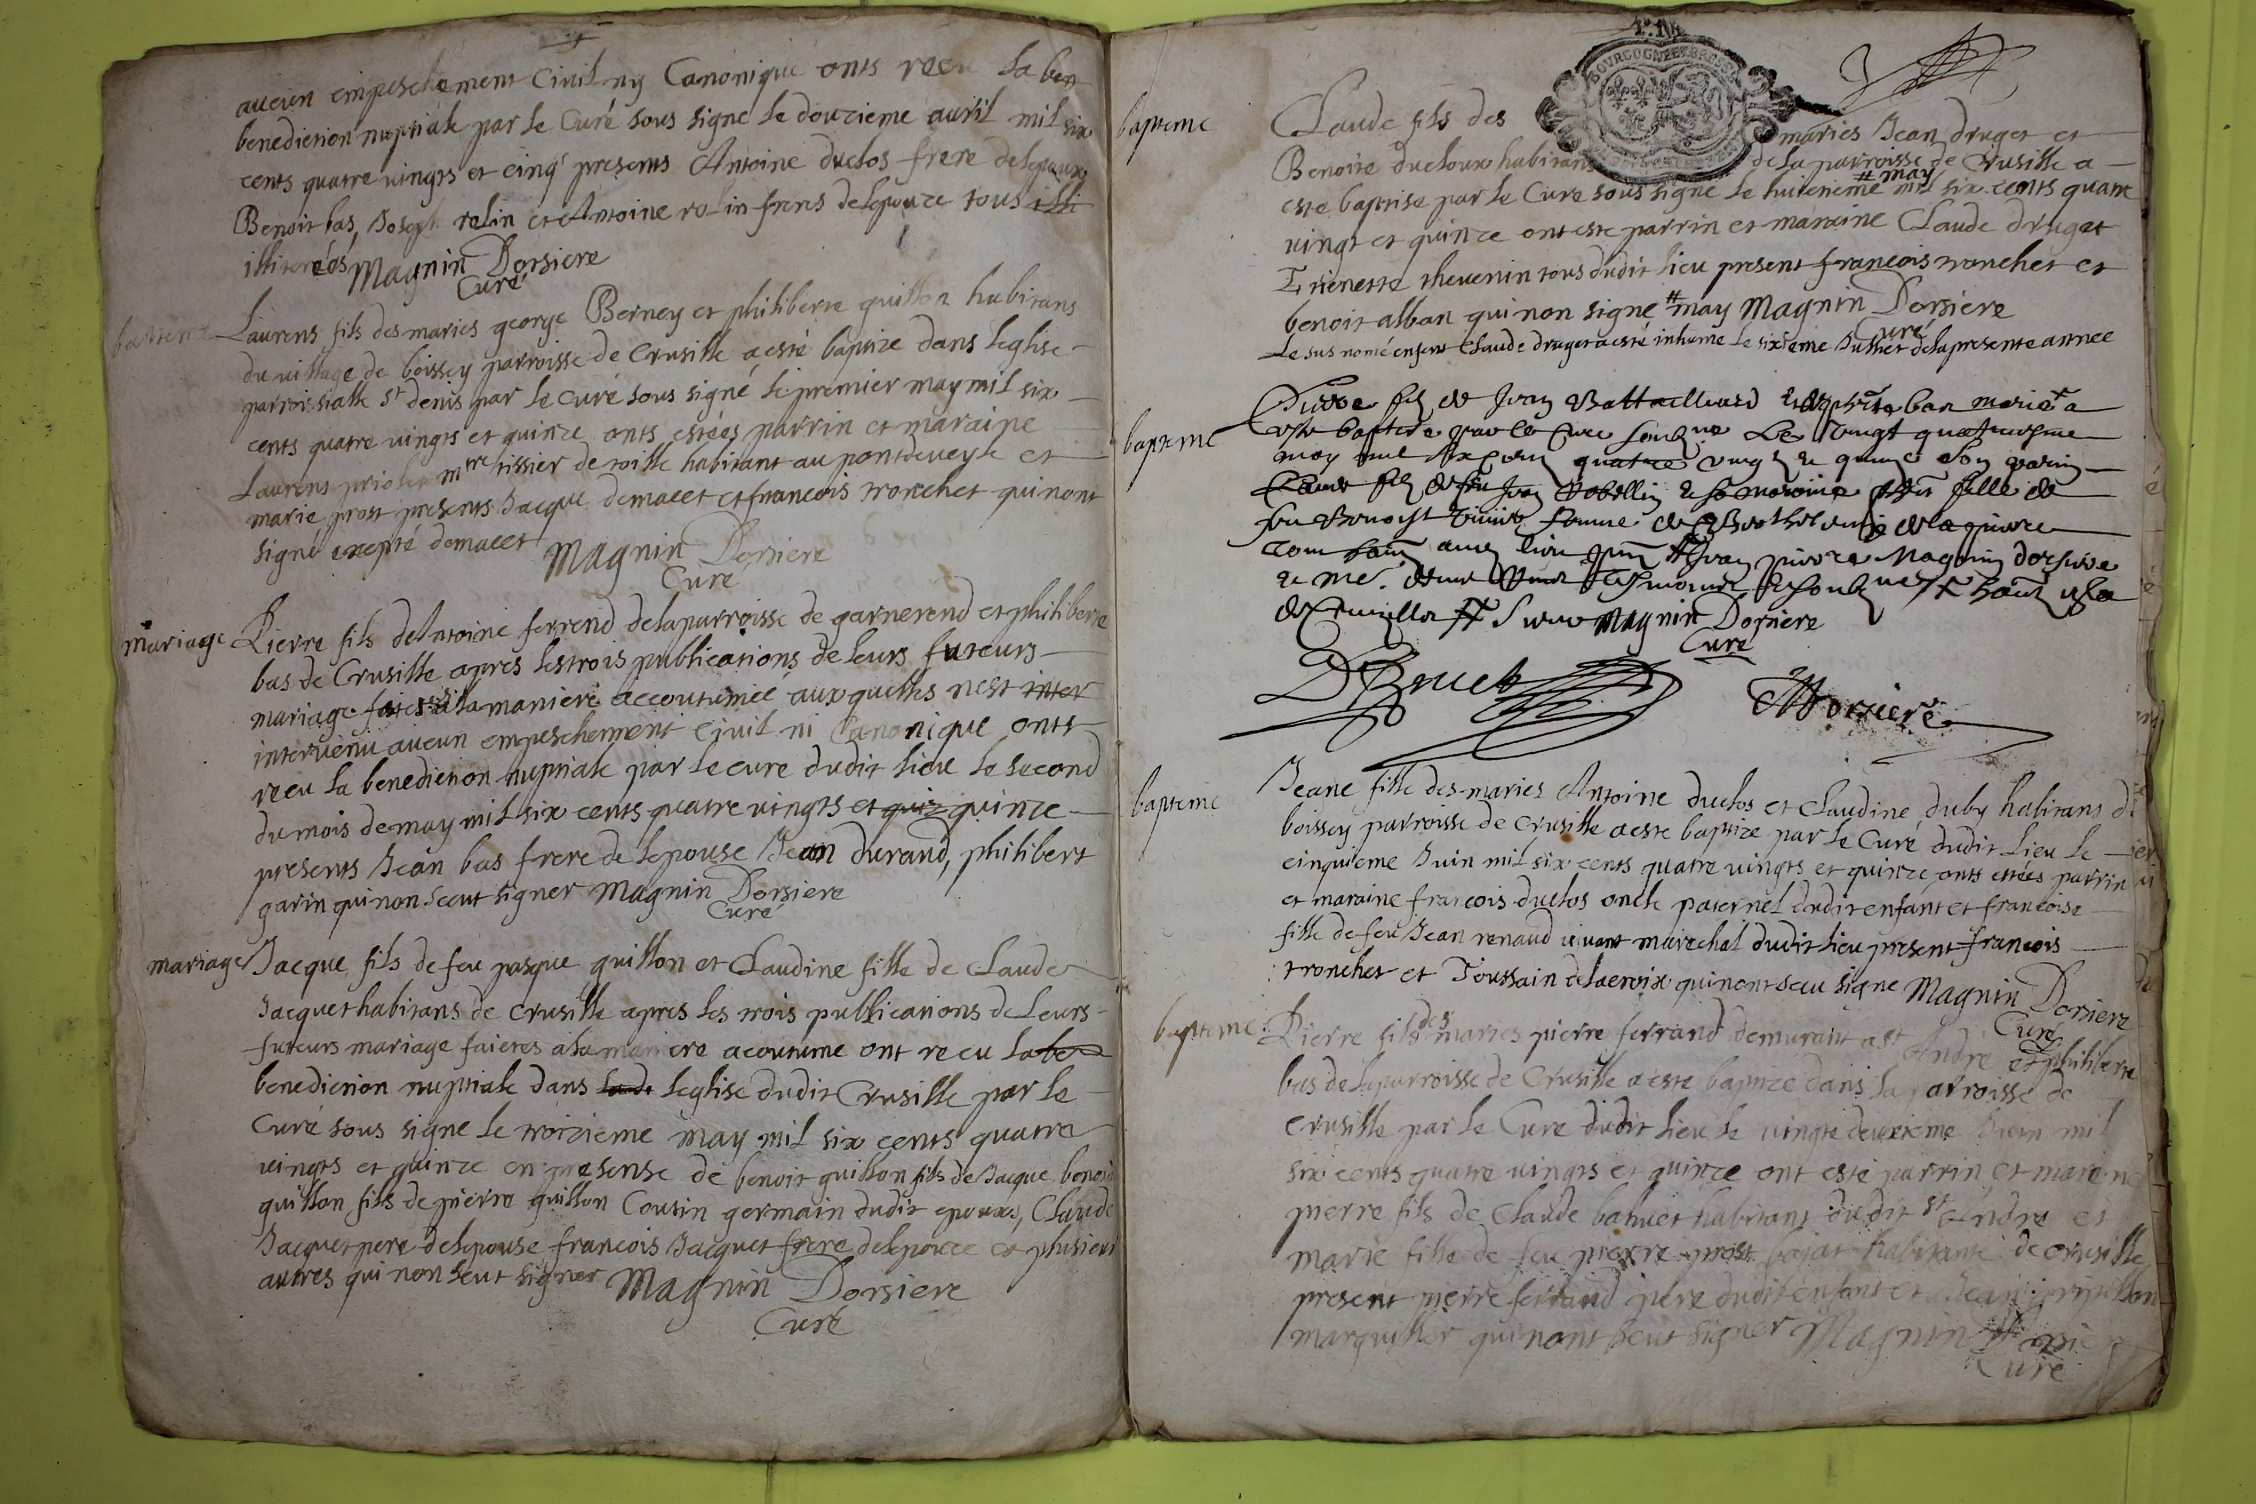 aucun empeschement Civil ny Canonique onts receu la ben
benediction nuptiale par le Curé sous signe le douzieme auril mil six
cents quatre uingts et cinq presents Antoine duclos frere delepaux
Benoit bas, Joseph rolin et Antoine rolin freres delepouce tous illi
illiterées Magnin Dorsiere
Curé
bapteme
Laurens fils des maries george Berney et philiberte guillon habitans
du uillage de boissey parroisse de Crusille a esté baptize dans leglise
parroissialle st denis par le curé sous signé le premier may mil six
cents quatre uingts et quinze onts estées parrin et maraine
Laurens mtre tissier de toille habitant au pontdeueyle et
marie prost presents Jacque demacet et francois tronchet qui nont
signé exepté demacet Magnin Dorsiere
Curé
mariage
Pierre fils de Antoine ferrend de la parroisse de garnerend et philiberte
bas de Crusille apres les trois publications de leurs futeurs
mariage faictes a la maniere accoutumée auxquelles nest inter
interuenu aucun empeschement Ciuil ni Canonique onts
receu la benediction nuptiale par le cure dudit lieu le second
du mois de may mil six cents quatre uingts et quiz quinze
presents Jean bas frere de lepouse Jean durand, philibert
garin qui non sceut signer Magnin Dorsiere
Curé
mariage
Jacque fils de feu pasque guillon et Claudine fille de Claude
Jacquet habitans de Crusille apres les trois publications de Leurs
futeurs mariage faictes a la maniere acoutume ont receu la ben
benediction nuptiale dans leglise dudit Crusille par le
Curé sous signe le troizieme may mil six cents quatre
uingts et quinze en presense de benoit guillon fils de Jacque benoit
guillon fils de pierre guillon Cousin germain dudit epouxs, Claude
Jacquet pere de lepouse francois Jacquet frere delepouce et plusieurs
autres qui non seut signer Magnin Dorsiere
Curé
BOURGOGNE ET BRESSE
bapteme
Claude fils des maries Jean druget et
Benoite ducloux habitans de la parroisse de Crusille a
este baptise par le Cure sous signe le huitieme # may mil six cents quatre
vingt et quinze ont este parrin et maraine Claude druget
Etienette theuenin tous dudit lieu present francois tronchet et
benoit alban qui non signe # may Magnin Dorsiere
Curé
Le sus nomé enfent Claude druget a esté inhume le sixieme Juillet de la presente annee
bapteme
Pierre fils de Jean Battaillard et ban mariés a
este baptize par le Cure soubsne Le Vingt quatriesme
may mil six cens quatre vingt et quinze son parin
Claude fils de feu Jean et sa maraine fille de
feu Benoist femme de de la pierre
Jean pierre Magnin dorsiere
de Crusille Magnin Dorsiere
Curé
Dorsiere
bapteme
Jeane fille des maries Antoine duclos et Claudine duby habitans de
boissey parroisse de Crusille a este baptize par le Curé dudit lieu le
cinquieme Juin mil six cents quatre uingts et quinze onts estées parrin
et maraine francois duclos oncle paternel dudit enfant et francoise
fille de feu Jean renaud uiuant marechal dudit lieu present francois
tronchet et Toussain delacroix qui nont sceu signe Magnin Dorsiere
Curé
bapteme
Pierre fils des maries pierre ferrand demurant a st Andre et philiberte
bas de la parroisse de Crusille a este baptize dans la parroisse de
Crusille par le Cure dudit lieu le uingte deuxieme Juin mil
six cents quatre uingts et quinze ont esté parrin et maraine
pierre fils de Claude bahuet habitant dudit st Andre et
marie fille de feu pierre prost bajat habitante de Crusille
present pierre ferrand pere dudit enfant et Jean
marguiller qui nont seut signer Magnin Dorsie
Curé